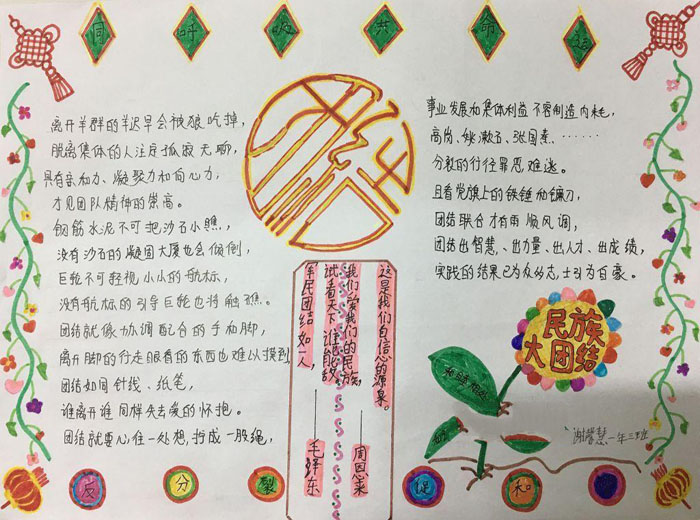 同呼吸共命运
离开羊群的羊迟早会被狼吃掉，
脱离集体的人注定孤寂无聊，
具有亲和力、凝聚力和向心力，
才见团队精神的崇高。
钢筋水泥不可把沙石小瞧，
没有沙石的凝固大厦也会倾倒，
巨轮不可轻视小小的航标，
没有航标的引导巨轮也将触礁。
团结就像协调配合的手和脚，
离开脚的行走眼看的东西也难以摸到，
团结如同针线、纸笔，
谁离开谁同样失去爱的怀抱。
团结就要心往一处想，拧成一股绳，
事业发展如集体利益不容制造内耗，
高岗、姚漱石、张国焘、……
分裂的行径罪恶难逃。
且看党旗上的铁锤和镰刀，
团结联合才有雨顺风调，
团结出智慧、出力量、出人才、出成绩，
实践的结果已为众的志士引为自豪。
这是我们自信心的源泉。
我们爱我们的民族，
——周恩来
试看天下谁能敌
军民团结如一人，
——毛泽东
民族
大团结
谢智慧 一年三班
反分裂促和